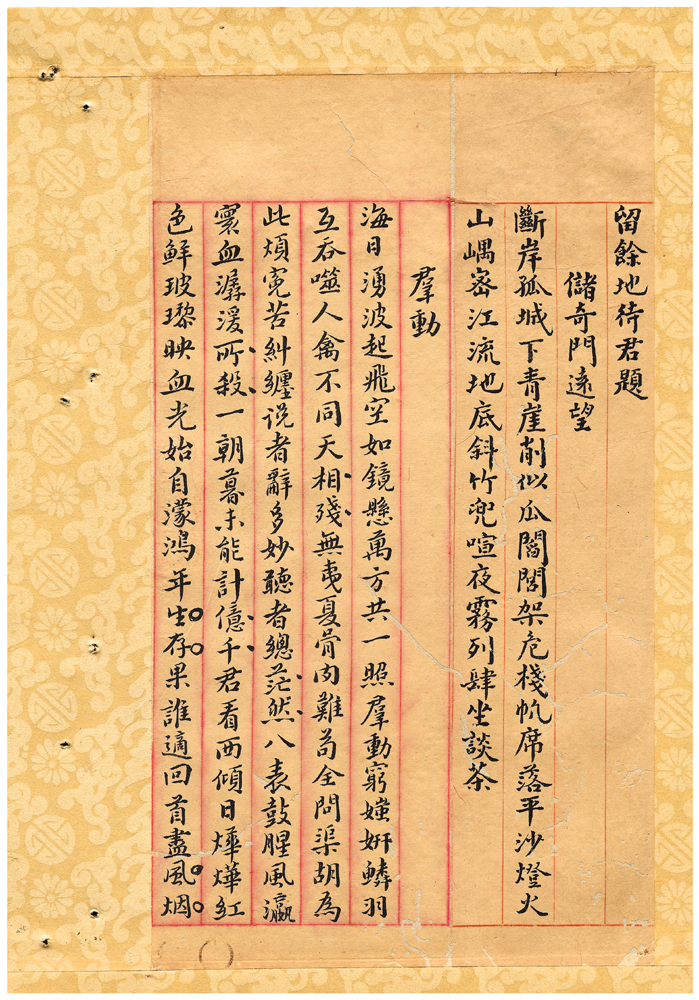 留餘地待君題
儲奇門遠望
斷岸孤城下青崖削似瓜架危棧帆席落平沙燈火
山嵎密江流地底斜竹兜喧夜霧列肆坐談茶
羣動
海日湧波起飛空如鏡懸萬方共一照羣動窮媸妍鱗羽
互吞噬人禽不同天相殘無夷夏骨肉難苟全問渠胡為
此煩冤苦糾纏说者辭多妙聽者總茫然八表鼓腥風瀛
寰血潺湲所殺一朝暮未能計億千君看西傾日燁燁紅
色鮮玻瓈映血光始自濛鴻年生存果誰適回首盡風烟